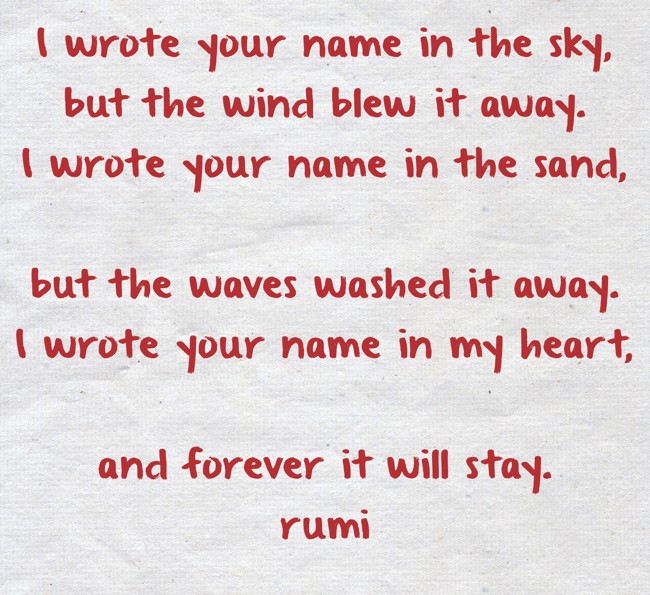 I wrote your name in the sky,
but the wind blew it away.
I wrote your name in the sand,
but the waves washed it away.
I wrote your name in my heart,
and forever it will stay.
rumi